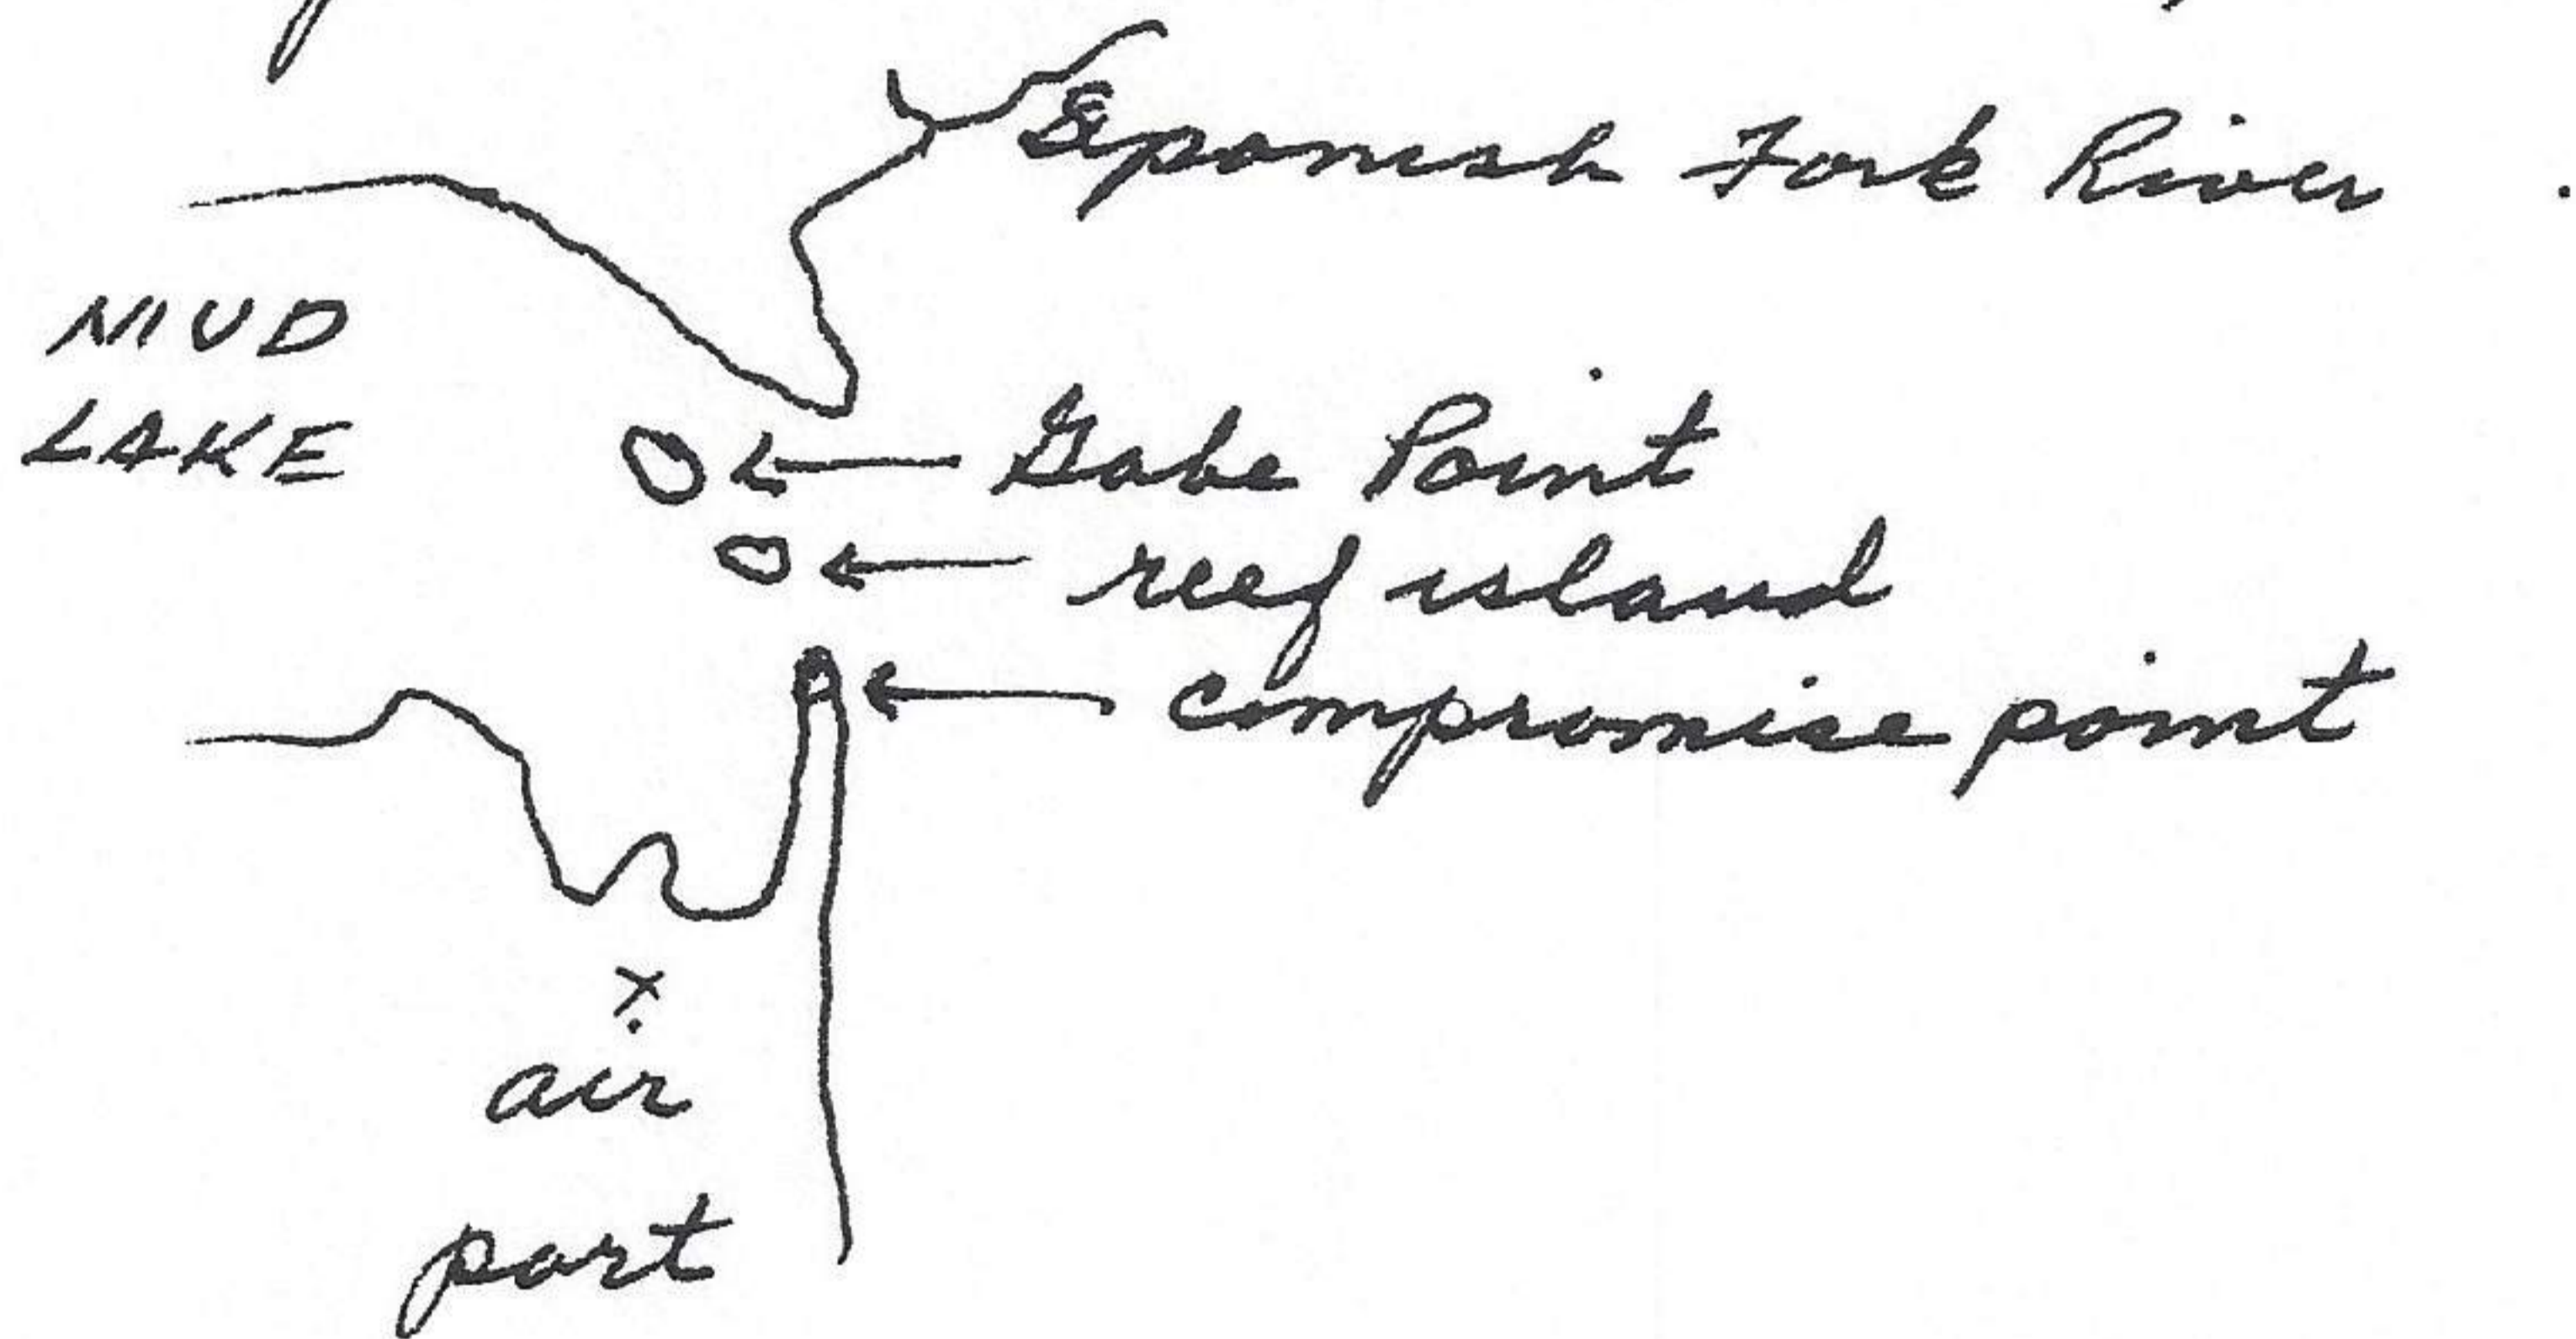 Spanish Fork River
MUD
LAKE
Gabe Point
reef island
compromise point
x
air
port